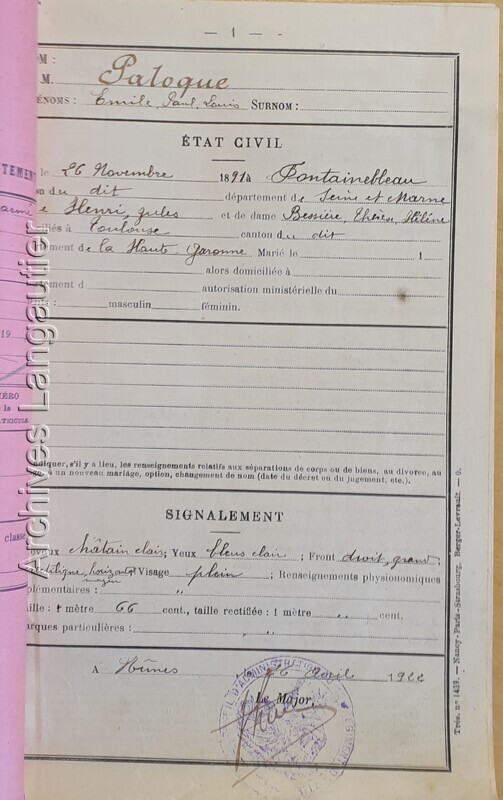 — 1 —
OM :
M. Paloque
ÉNOMS : Emile, Paul, Louis SURNOM :
ÉTAT CIVIL
le 26 Novembre 1891 à Fontainebleau
on du dit département de Seine et Marne
e Henri, Jules et de dame Bessière, Hélène
iliés à Toulouse canton du dit
tement de la Haute-Garonne Marié le 1
alors domiciliée à
ement d autorisation ministérielle du
nts : masculin féminin.
ndiquer, s'il y a lieu, les renseignements relatifs aux séparations de corps ou de biens, au divorce, au
à un nouveau mariage, option, changement de nom (date du décret ou du jugement, etc.).
SIGNALEMENT
eveux châtain clair; Yeux bleus clair ; Front droit, grand ;
rectiligne, horizontal Visage plein ; Renseignements physionomiques
moyen
plémentaires : "
aille : 1 mètre 66 cent., taille rectifiée : 1 mètre " cent.
arques particulières : "
A Nîmes 26 avril 1922
Le Major,
D'ADMINISTRATION
Trés. n° 1439. — Nancy-Paris-Strasbourg, Berger-Levrault. —
TEMENT
19
MÉRO
la
ATRICULE
classe
Archives Langautier